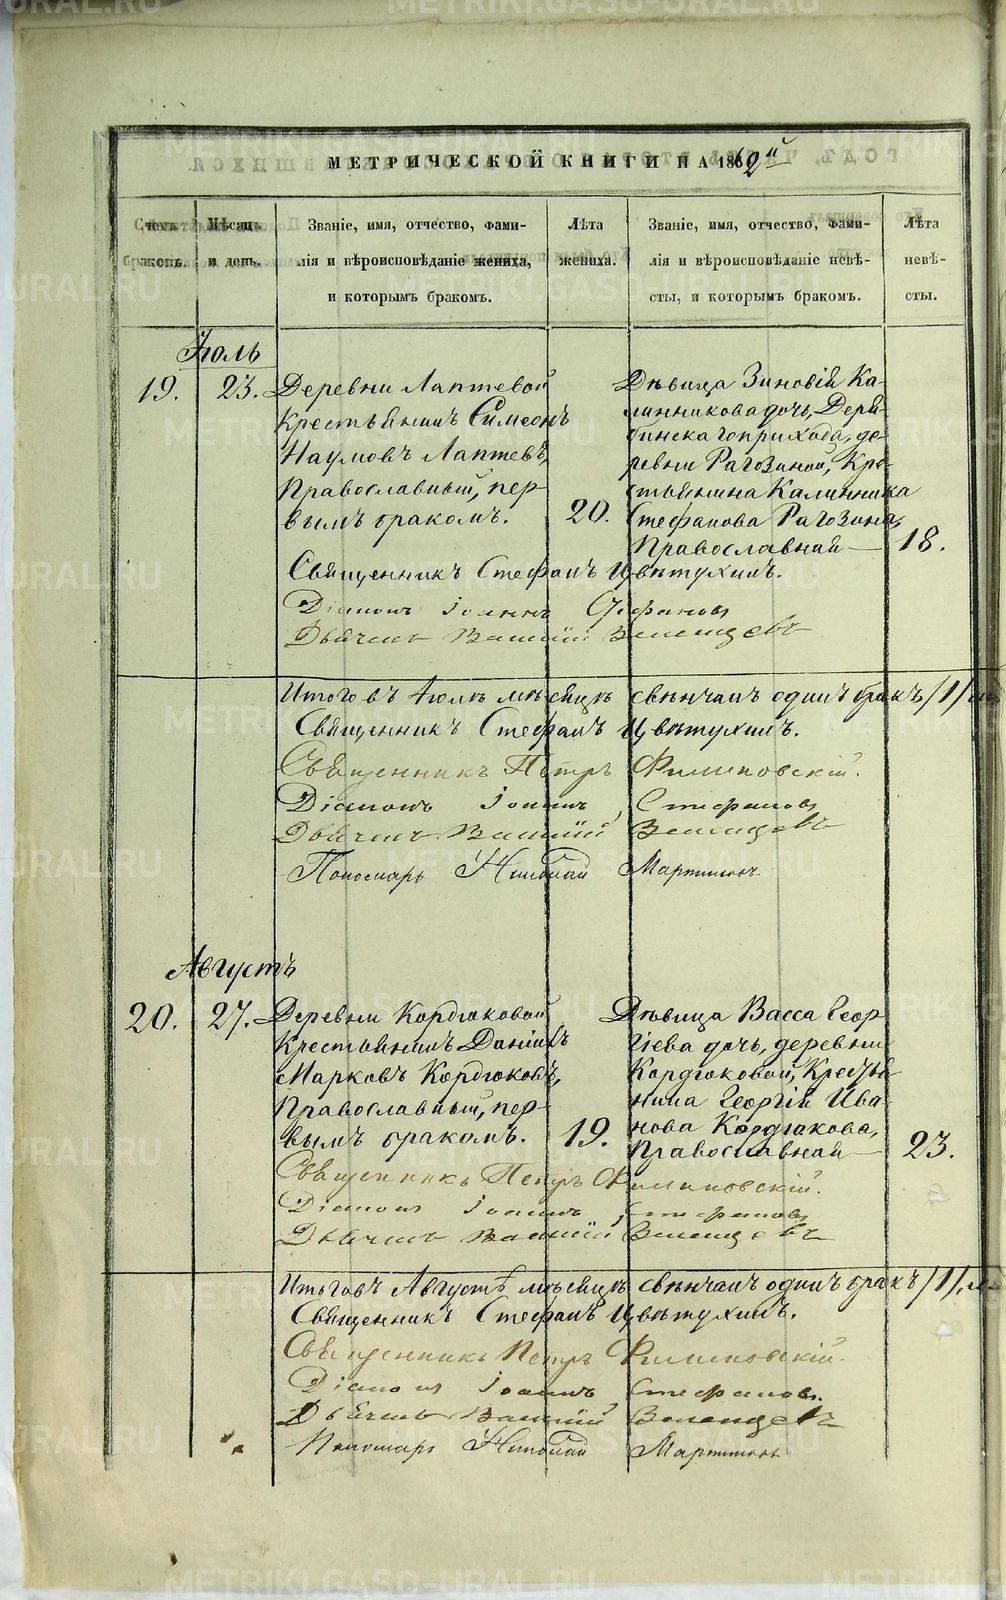 МЕТРИЧЕСКОЙ КНИГИ НА 1862й
Счетъ браковъ.
Мѣсяцъ и день.
Званіе, имя, отчество, фами-
лія и вѣроисповѣданіе жениха,
и которымъ бракомъ.
Лѣта жениха.
Званіе, имя, отчество, фами-
лія и вѣроисповѣданіе невѣ-
сты, и которымъ бракомъ.
Лѣта невѣ-
сты.
Іюль
19. 23.
Деревни Лаптевой
Крестьянинъ Симеонъ
Наумовъ Лаптевъ,
Православный, пер-
вымъ бракомъ.
20.
Дѣвица Зиновія Ка-
линникова дочь, Деря-
бинскаго прихода, де-
ревни Рагозиной, Кре-
стьянина Калинника
Стефанова Рагозина,
Православная —
18.
Священникъ Стефанъ Цвѣтухинъ.
Діаконъ Іоаннъ Стефановъ
Дьячекъ Василій
Итого въ Іюлѣ мѣсяцѣ свѣнчанъ одинъ бракъ /1/
Священникъ Стефанъ Цвѣтухинъ.
Священникъ Петръ Филиповскій.
Діаконъ Іоаннъ Стефановъ
Дьячекъ Василій
Пономарь Николай
Августъ
20. 27.
Деревни Кордюковой
Крестьянинъ Даніилъ
Марковъ Кордюковъ,
Православный, пер-
вымъ бракомъ.
19.
Дѣвица Васса Геор-
гіева дочь, деревни
Кордюковой, Крестья-
нина Георгій Ива-
нова Кордюкова,
Православная —
23.
Священникъ Петръ Филиповскій.
Діаконъ Іоаннъ Стефановъ
Дьячекъ Василій
Итого въ Августѣ мѣсяцѣ свѣнчанъ одинъ бракъ /1/,
Священникъ Стефанъ Цвѣтухинъ.
Священникъ Петръ Филиповскій.
Діаконъ Іоаннъ Стефановъ
Дьячекъ Василій
Пономарь Николай
METRIKI.GASO-URAL.RU